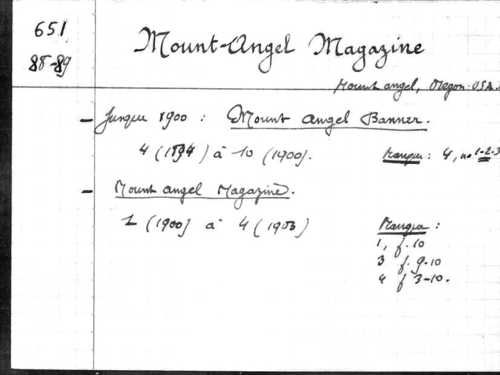 651
88-89
Mount-Angel Magazine
Mount angel, Oregon-USA.
- Jusque 1900 : Mount Angel Banner.
4 (1894) à 10 (1900). Manque : 4, no 1-2-3
- Mount angel Magazine.
1 (1900) à 4 (1903) Manque :
1, f. 10
3 f. 9-10
4 f 3-10.